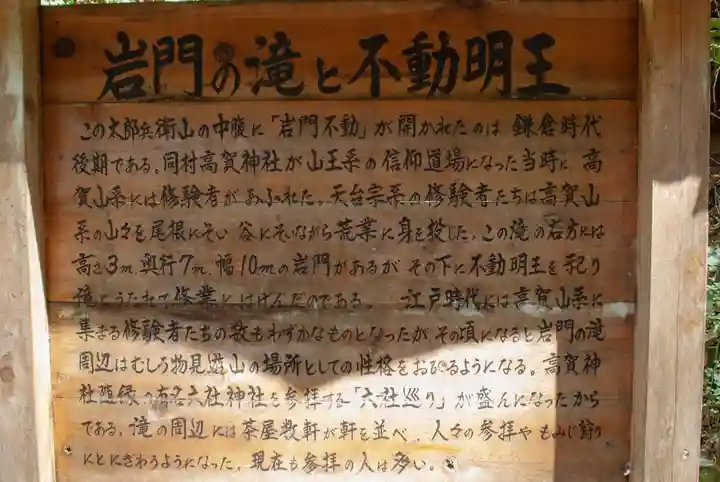 岩門の滝と不動明王
この太郎兵衛山の中腹に「岩門不動」が開かれたのは 鎌倉時代
後期である。同村高賀神社が山王系の信仰道場になった当時に 高
賀山系には修験者があふれた。天台宗系の修験者たちは高賀山
系の山々を尾根にそい 谷にそいながら荒業に身を投じた。この滝の右方には
高さ3m、奥行7m、幅10mの岩門があるが その下に不動明王を祀り
滝にうたれて修業にはげんだのである。 江戸時代には高賀山系に
集まる修験者たちの数もわずかなものとなったが、その頃になると岩門の滝
周辺はむしろ物見遊山の場所としての性格をおびるようになる。高賀神
社随縁の有名六社神社を参拝する「六社巡り」が盛んになったから
である。滝の周辺には茶屋数軒が軒を並べ、人々の参拝や もみじ狩り
にとにぎわうようになった。現在も参拝の人は多い。